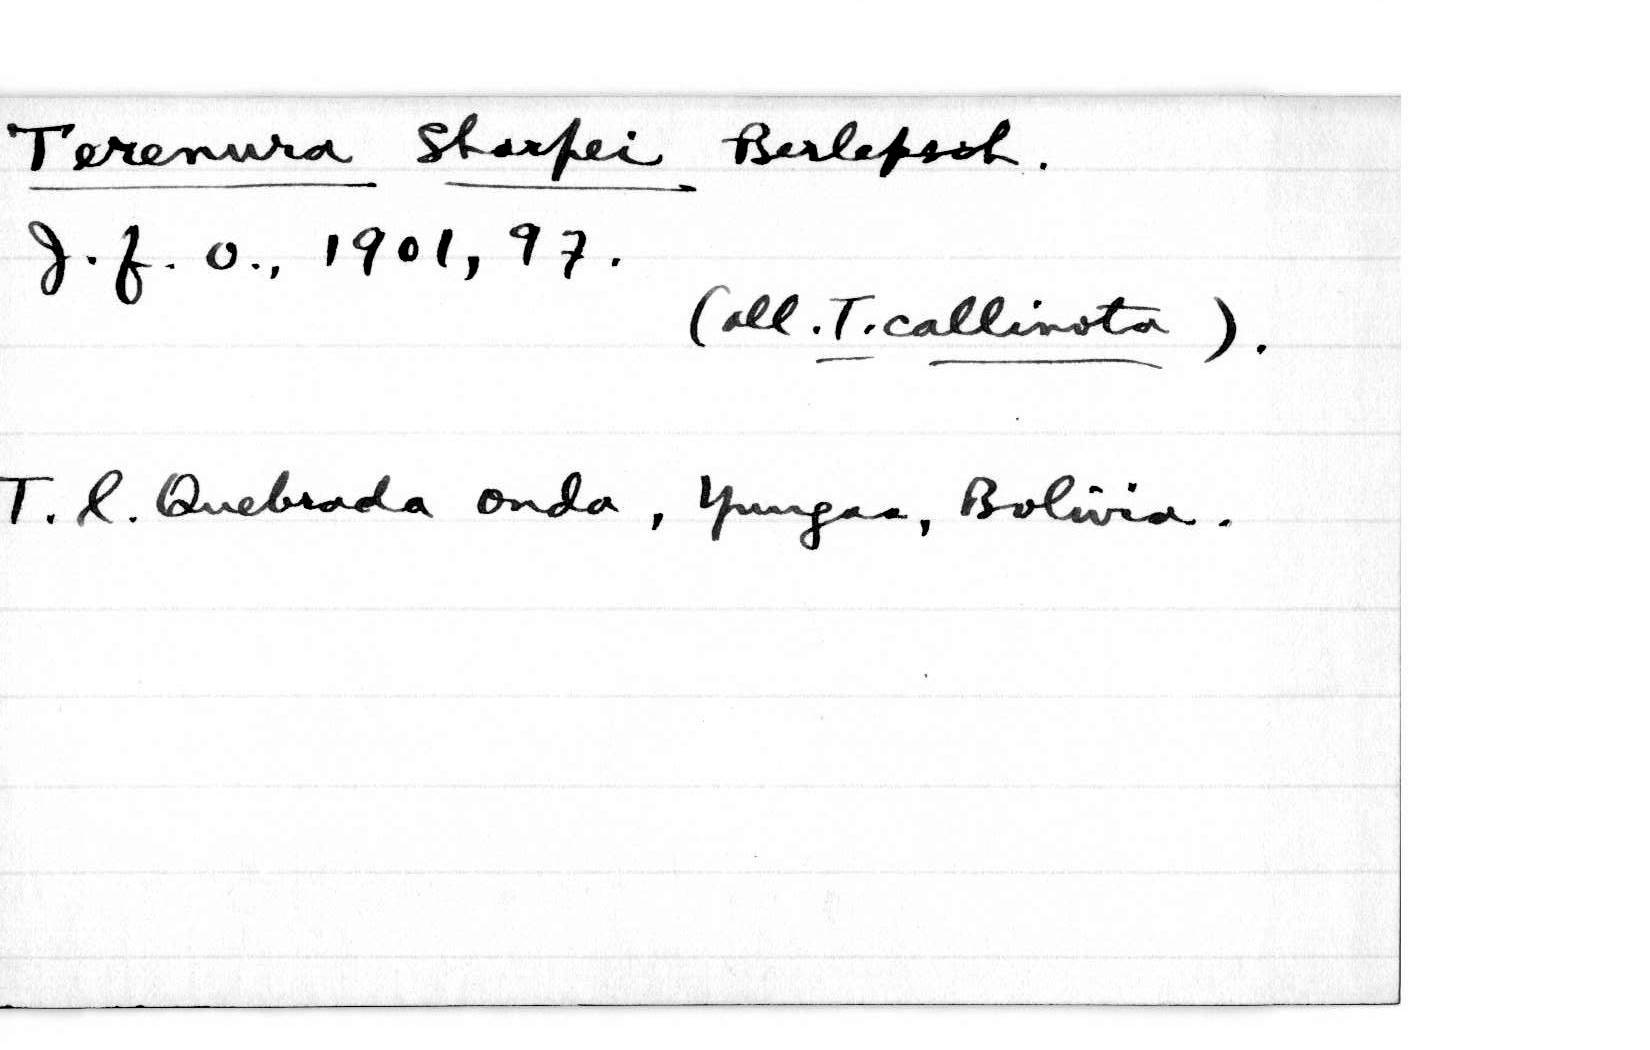 Terenura Sharpei Berlepsch.
J. f. O., 1901, 97.
(all. T. callinota).
T. l. Quebrada onda, Yungas, Bolivia.